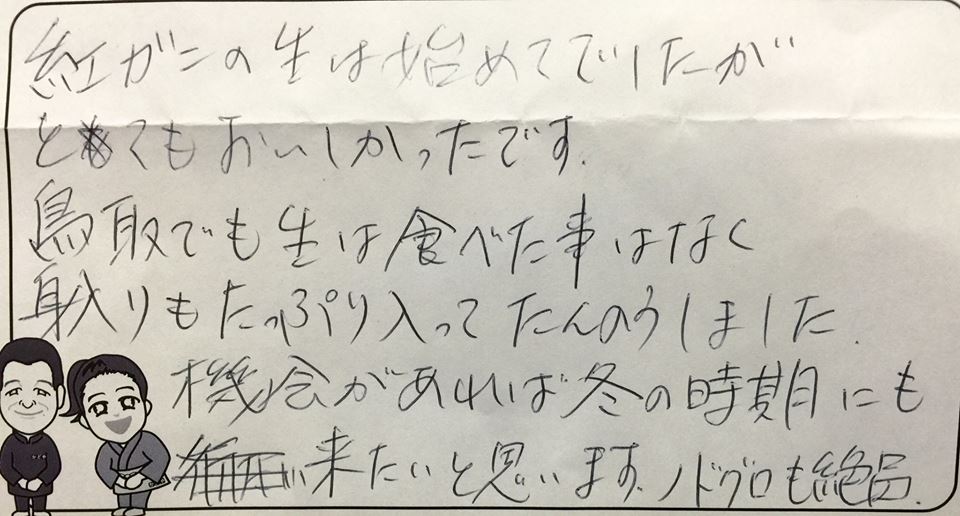 紅ガニの生は始めてでしたが
とてもおいしかったです.
鳥取でも生は食べた事はなく
身入りもたっぷり入ってたんのうしました.
機会があれば冬の時期にも
来たいと思います.ノドグロも絶品.